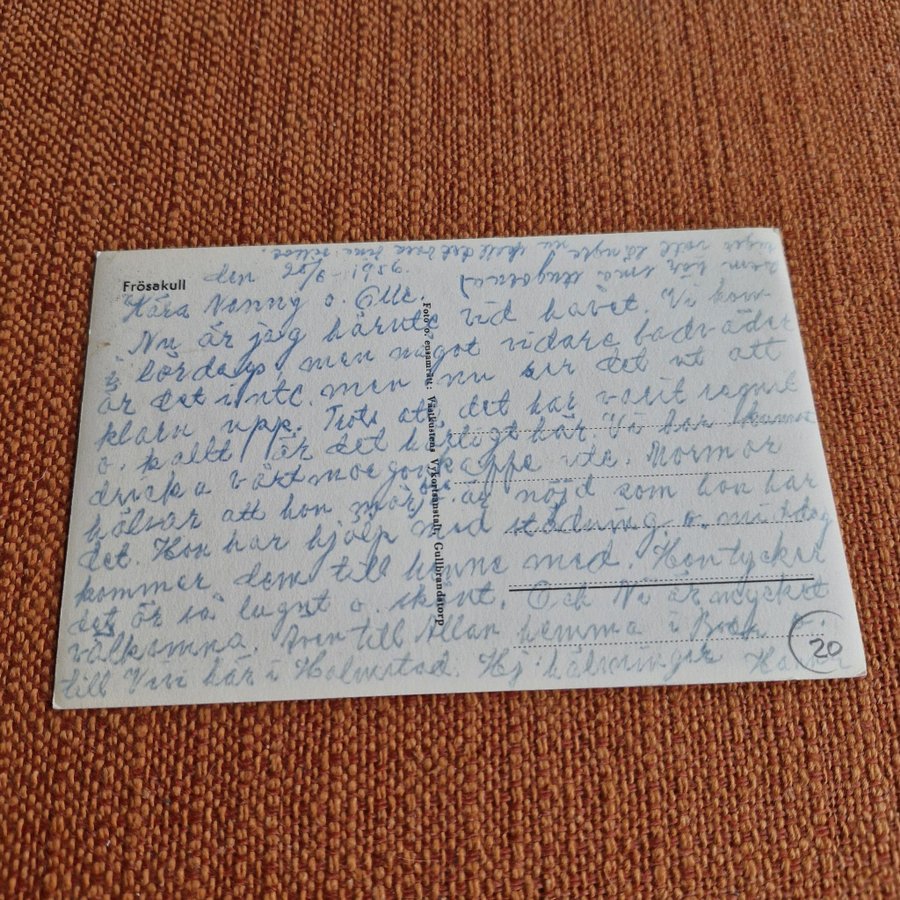 Frösakull
den 25/8 1959.
Kära Nanny o. Olle.
Nu är jag härute vid havet. Vi kom
i lördags men något vidare badväder
är det inte. men nu ser det ut att
klarn upp. Trots att det har varit regnit
o. kallt är det härligt här. Vi har kunnat
dricka vårt morgonkaffe ute. Mormor
hälsar att hon är nöjd som hon har
det. Hon har hjälp med städning o. middag
kommer dem till henne med. Hon tycker
det är så lugnt o. skönt. Och Ni är mycket
välkomna. Även till Allan hemma i
till Vivi här i Halmstad. Hj. hälsningar
som har små ungarna)
nu
Foto o. ensamrätt: Västkustens Vykortsanstalt, Gullbrandstorp
20